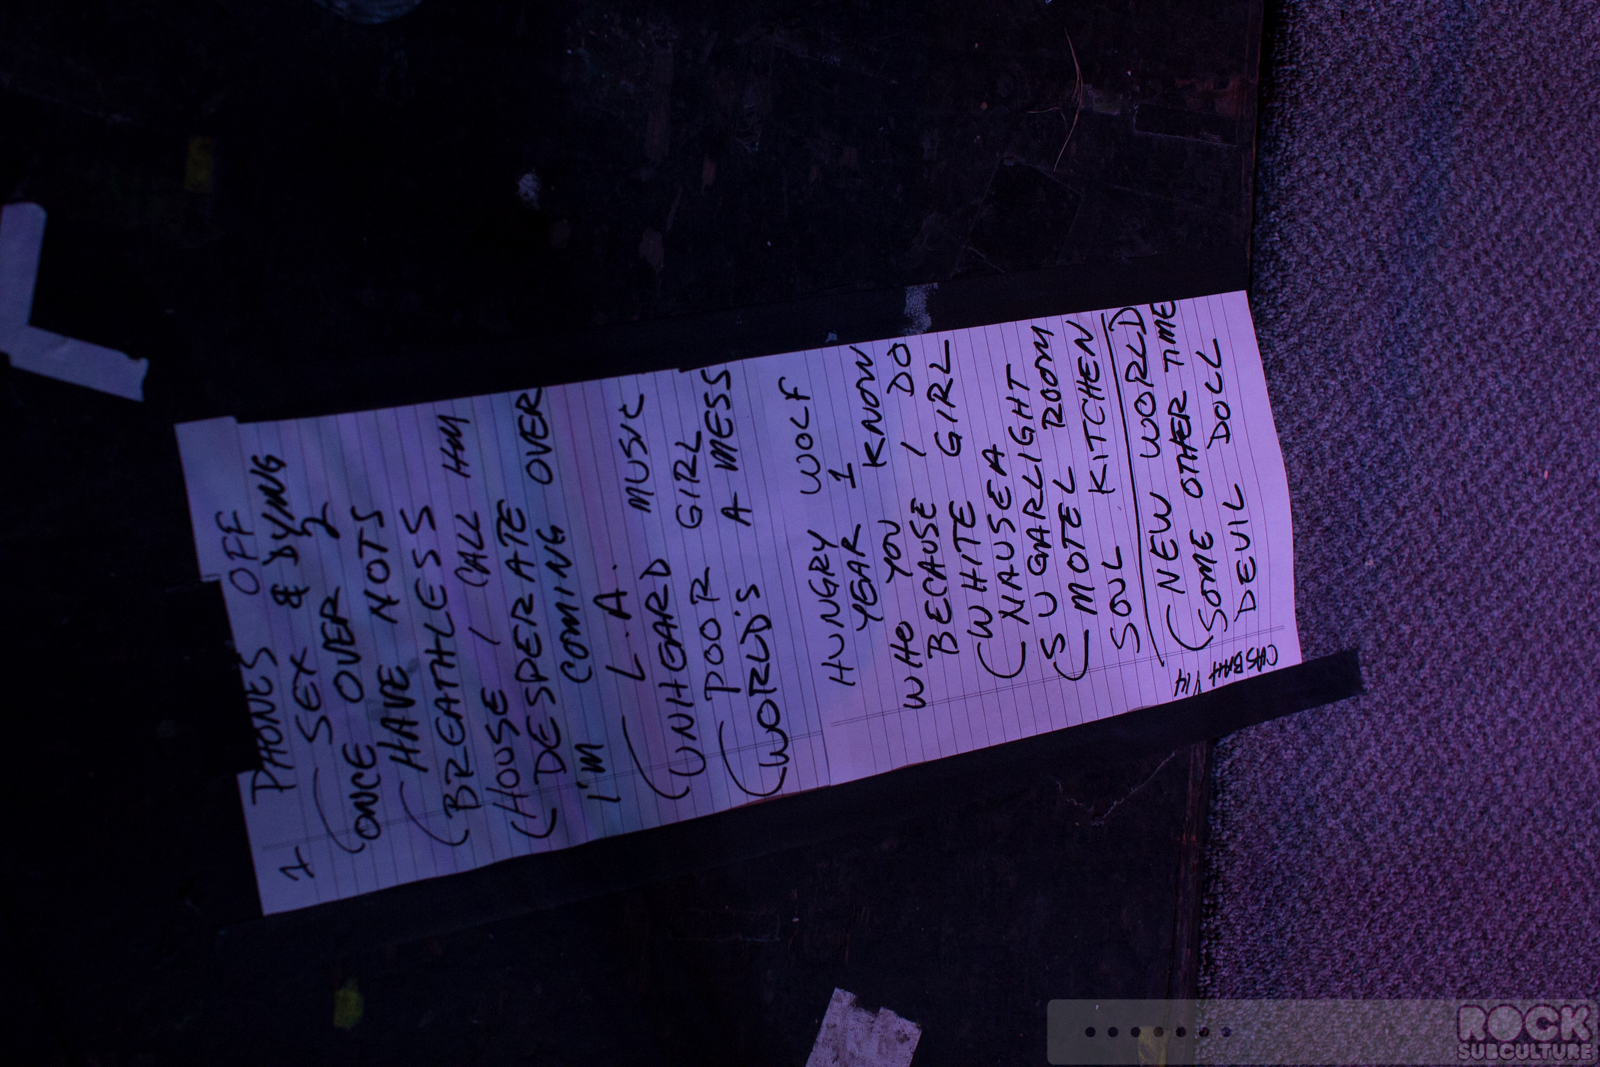 PHONES OFF
1 SEX & DYING
ONCE OVER 2
HAVE NOTS
BREATHLESS
HOUSE I CALL HM
DESPERATE
I'M COMING OVER
L.A.
UNHEARD MUSIC
POOR GIRL
WORLD'S A MESS
HUNGRY WOLF
YEAR 1
WHO YOU KNOW
BECAUSE I DO
WHITE GIRL
NAUSEA
SUGARLIGHT
MOTEL ROOM
SOUL KITCHEN
NEW WORLD
SOME OTHER TIME
DEVIL DOLL
CASBAH
ROCK
SUBCULTURE